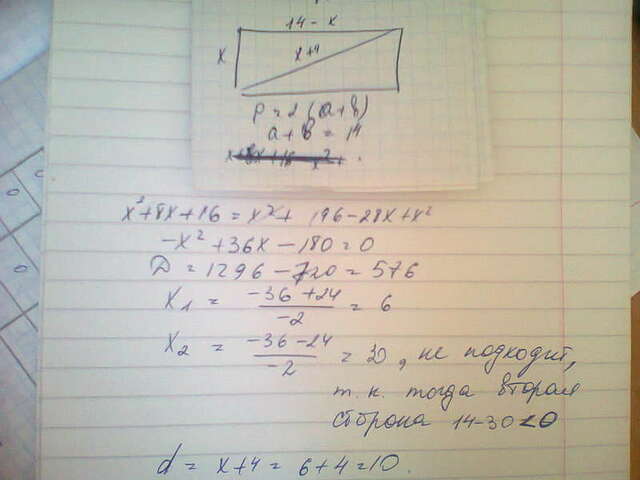 14 - x
x
x+4
P = 2 (a+b)
a+b = 14
x²+8x+16 = x²+ 196-28x+x²
-x²+36x-180=0
D = 1296-720=576
x₁ = (-36+24)/(-2) = 6
x₂ = (-36-24)/(-2) = 30, не подходит,
т.к. тогда вторая
сторона 14-30<0
d = x+4 = 6+4=10.